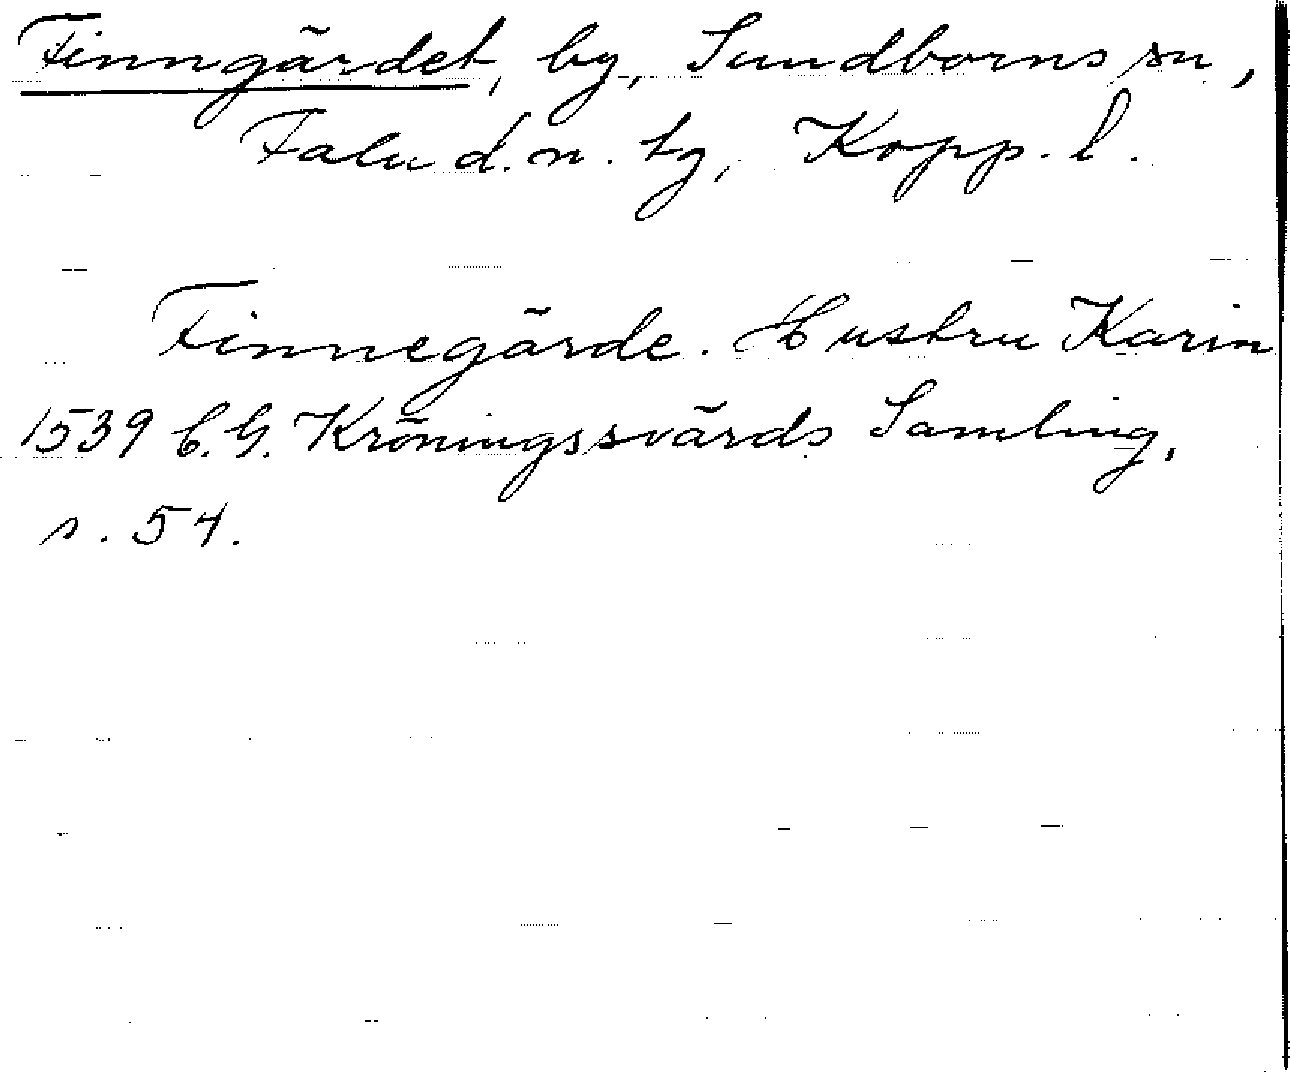 Finngärdet, by, Sundborns sn,
Falu d. n. tg, Kopp. l.
Finnegärde. Hustru Karin
1539 C. G. Kröningssvärds Samling,
s. 54.